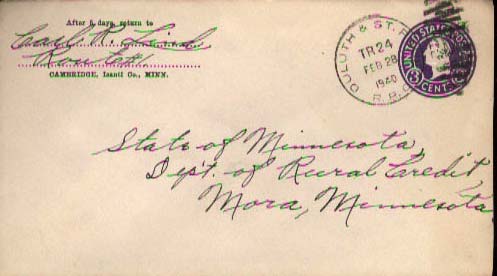 After 5 days, return to
Carl R. Lind
Route 1
CAMBRIDGE, Isanti Co., MINN.
DULUTH & ST. P
TR 24
FEB 28
1940
R.P.O.
UNITED STATES POSTAGE
3 CENTS 3
State of Minnesota,
Dept. of Rural Credit,
Mora, Minnesota